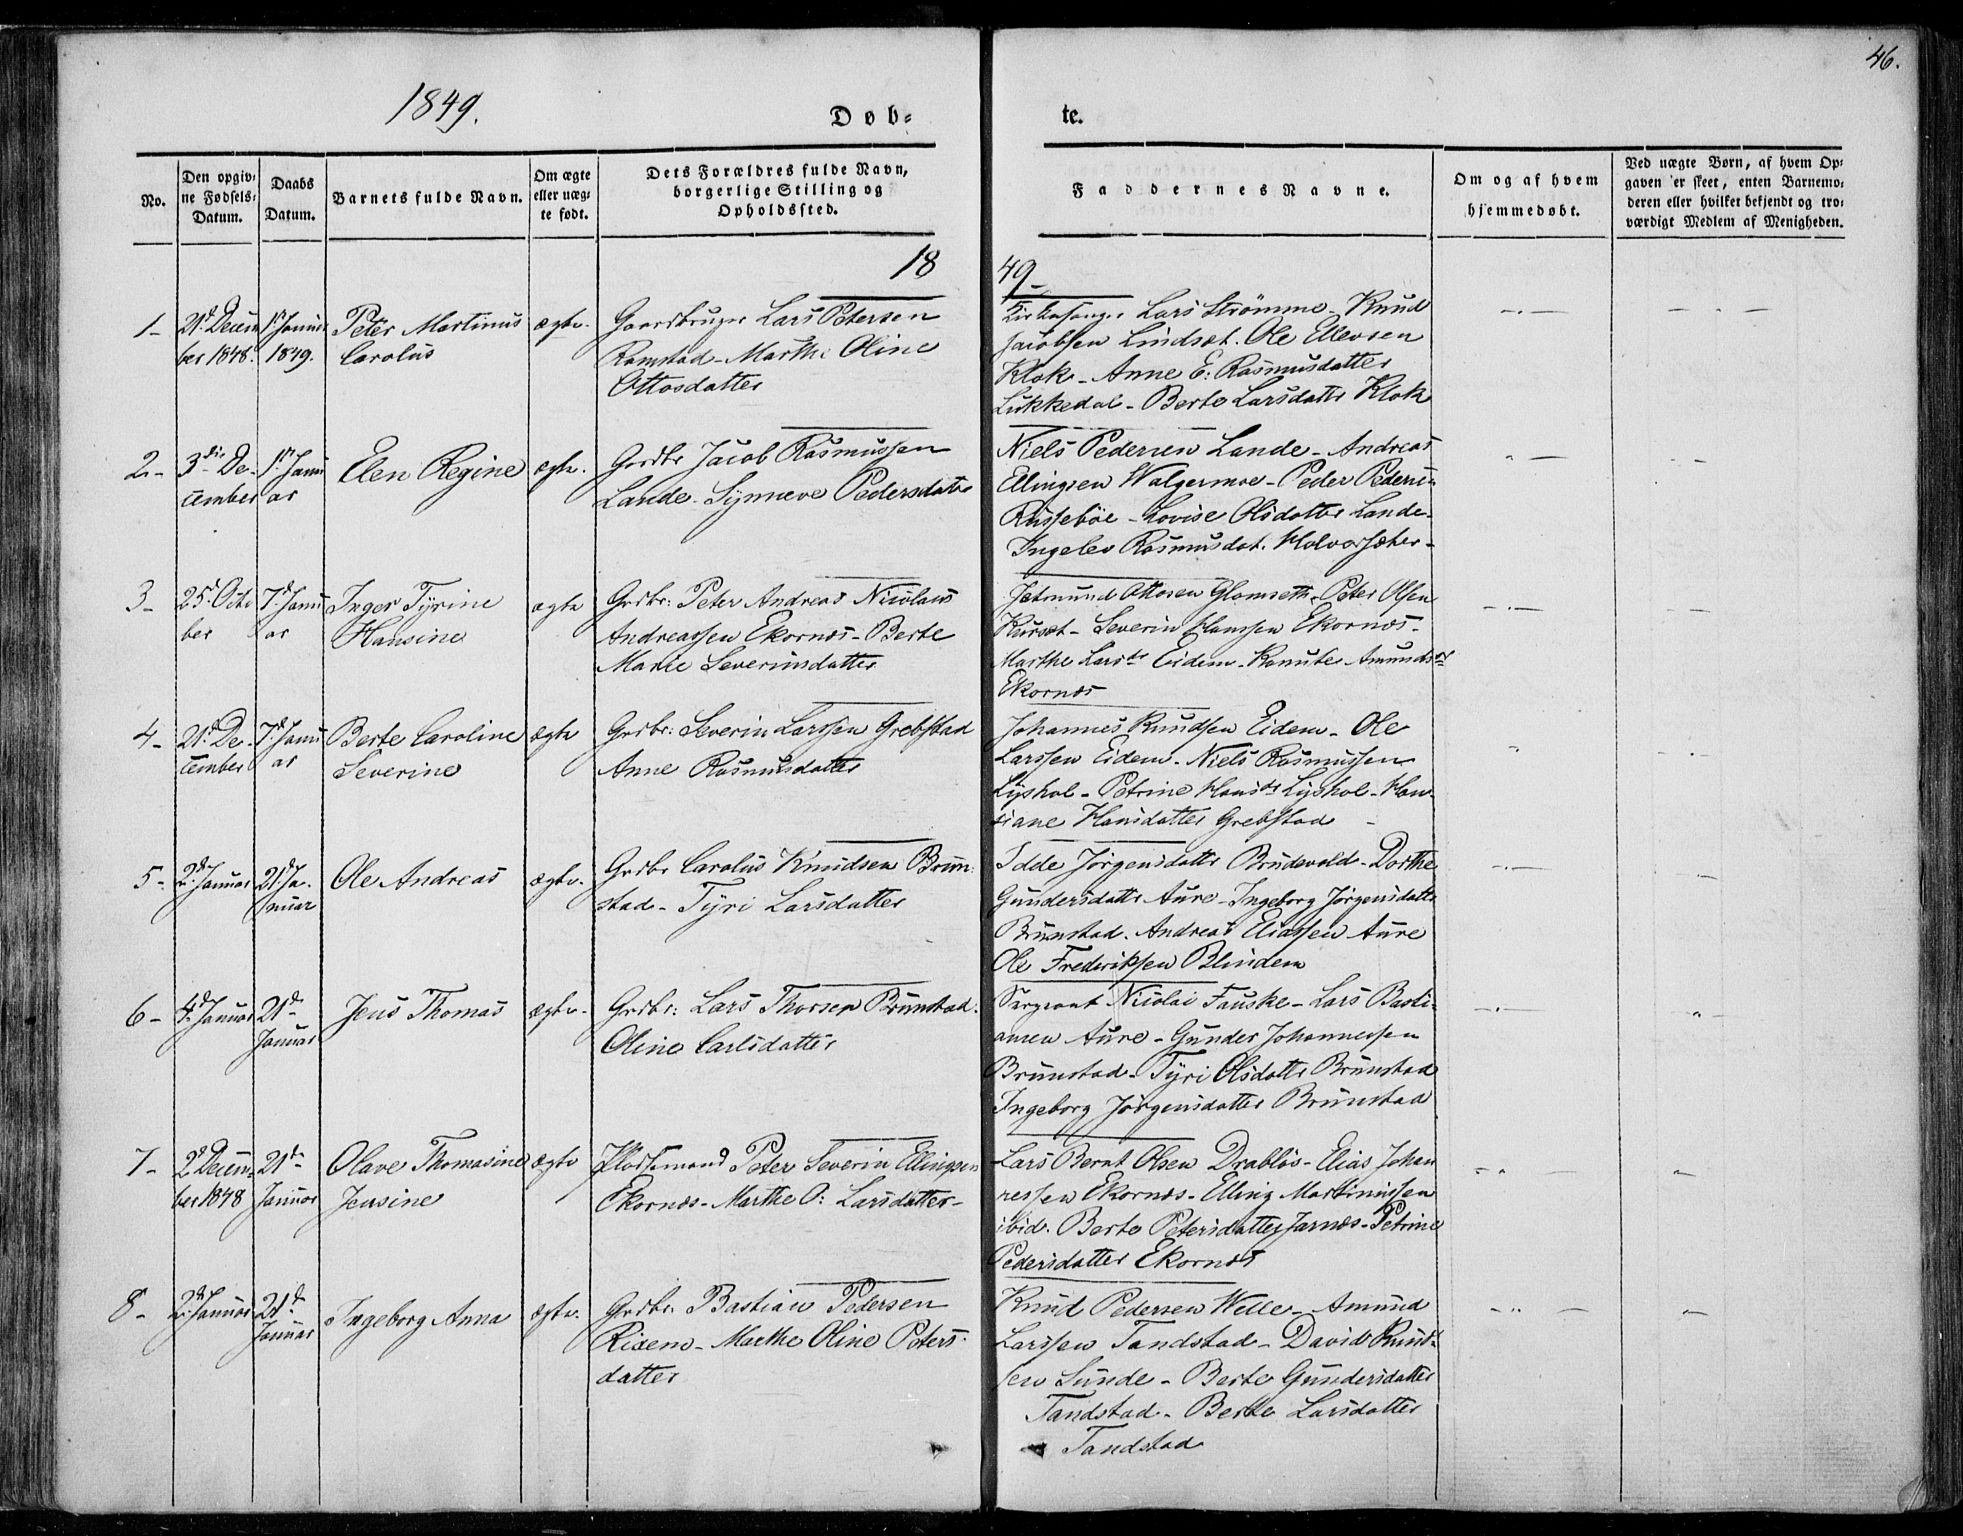 46.
1849.
Døb-
te.
No.
Den opgiv-
ne Fødsels-
Datum.
Daabs
Datum.
Barnets fulde Navn.
Om ægte
eller uæg-
te født.
Dets Forældres fulde Navn,
borgerlige Stilling og
Opholdssted.
Faddernes Navne.
Om og af hvem
hjemmedøbt.
Ved uægte Børn, af hvem Op-
gaven er skeet, enten Barnemo-
deren eller hvilket bekjendt og tro-
værdigt Medlem af Menigheden.
18
49
1-
21d. Decem
ber 1848.
1ste Januar
1849.
Peter Martinus
Carolus
ægte.
Gaardbruger Lars Petersen
Ramstad - Marthe Oline
Ottosdatter
Kirkesanger Lars Strömme - Knud
Jacobsen Lindset. Ole Ellevsen
Klok - Anne E: Rasmusdatter
Lukkedal - Berte Larsdatter Klok
2-
3die De-
cember
1ste Janu
ar
Elen Regine
ægte.
Grdbr Jacob Rasmussen
Lande. Synneve Pedersdatter
Niels Pedersen Lande - Andreas
Ellingsen Walgermoe - Peder Pedersen
Russebøe - Lovise Olsdatter Lande -
Ingelev Rasmusdat. Holversæter -
3-
25d. Octo
ber
7d. Janu
ar
Inger Tyrine
Hansine
ægte
Grdbr: Peter Andreas Nicolaus
Andreassen Ekornæs - Berte
Marie Severinsdatter
Jetmund Ottosen Glomseth. Peter Olsen
Kurset - Severin Hanssen Ekornæs -
Marthe Larsdr Eidem - Kanute Amundsdr
Ekornæs
4-
21d. De-
cember
7d. Janu
ar
Berte Caroline
Severine
ægte
Grdbr: Severin Larssen Grebstad
Anne Rasmusdatter
Johannes Knudsen Eidem - Ole
Larssen Eidem - Niels Rasmussen
Lyshol - Petrine Hansdr Lyshol - Han-
siane Hansdatter Grebstad -
5-
2d. Januar
21d Ja-
nuar
Ole Andreas
ægte.
Grdbr Carolus Knudsen Brun-
stad - Tyri Larsdatter
Idde Jørgensdatter Brudevold - Dorthe
Gundersdatter Aure - Ingeborg Jørgensdatter
Brunstad. Andreas Eliassen Aure
Ole Frederiksen Blindem
6-
4d. Januar
21d.
Januar
Jens Thomas
ægte.
Grdbr: Lars Thorsen Brunstad.
Oline Carlsdatter
Sergeant Nicolai Fauske - Lars Basti-
ansen Aure - Gunder Johannessen
Brunstad - Tyri Olsdatter Brunstad
Ingeborg Jørgensdatter Brunstad
7-
2d Decem-
ber 1848
21d.
Januar
Olave Thomasine
Jensine
ægte
Pladsemand Peter Severin Ellingsen
Ekornæs - Marthe P: Larsdatter -
Lars Bernt Olsen Drabløs - Elias Johan
nessen Ekornæs - Elling Martinussen
ibid. Berte Petersdatter Jarnæs - Petrine
Pedersdatter Ekornæs
8-
2d. Januar
21d.
Januar
Ingeborg Anna
ægte.
Grdbr: Bastian Pedersen
Risem - Marthe Oline Peters-
datter
Knud Pedersen Welle - Amund
Larssen Tandstad - David Knud-
sen Sunde - Berte Gundersdatter
Tandstad - Berte Larsdatter
Tandstad